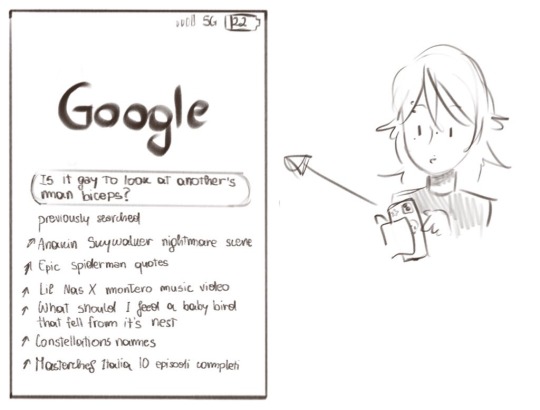 5G 22
Google
Is it gay to look at another's
man biceps?
previously searched
Anakin Skywalker nightmare scene
Epic spiderman quotes
Lil Nas X montero music video
What should I feed a baby bird
that fell from it's nest
Constellations names
Masterchef Italia 10 episodi completi